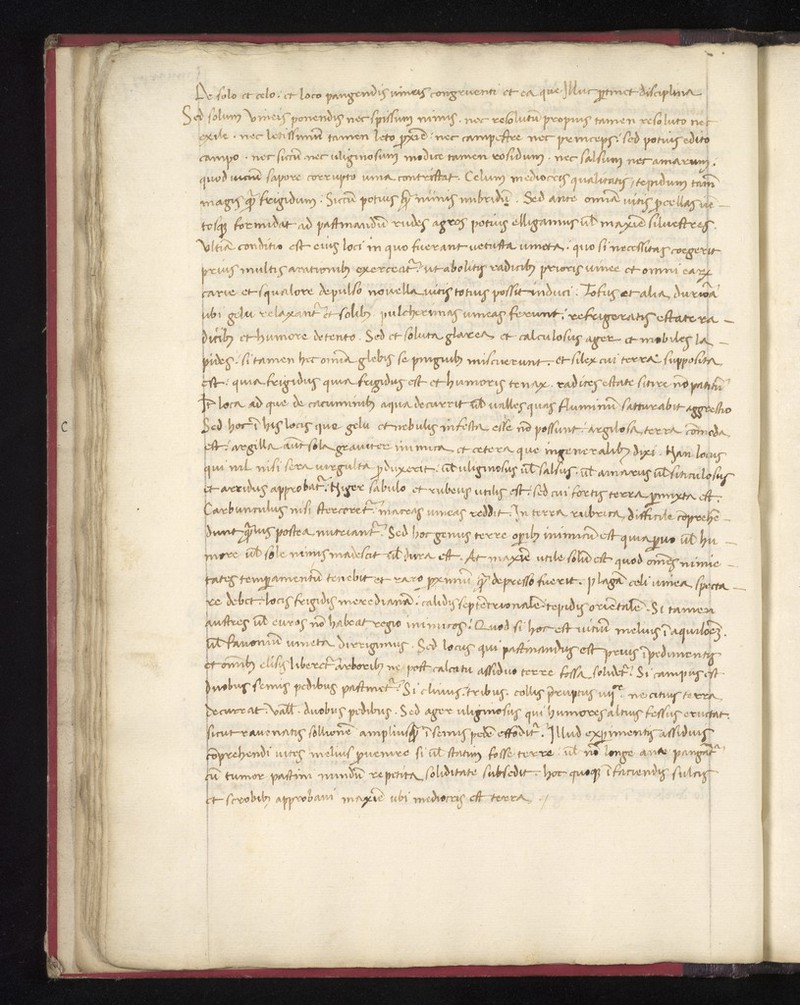 De solo et celo. et loco pangendis vineis congruenti et ea que illuc p̄tinet disciplina
Sed solum vineis ponendis nec spissum nimis. nec resolutū propius tamen resoluto nec
exile. nec letissimū tamen leto p̄xiē. nec campestre nec princeps. sed potius edito
campo. nec siccū nec uliginosum modice tamen rosidum. nec salsum nec amarum.
quod viciū sapore corrupto vina contristat. Celum mediocris qualitatis, tepidum tam̄
magis qᷓ frigidum. Siccū potius qᷓ nimis nubridū. Sed ante omīa vitis pcellas ve-
tosqꝫ formidat ad pastinandū rudes agros potius elligamus ūl maxiē silvestres.
Ultīa conditio est eius loci in quo fuerant vetusta vineta. quo si necessitas coegerit
prius multis arationibꝫ exerceat᷑. ut abolitis radicibꝫ prioris vinee et omni eaꝝ
carie et squalore depulso novella vitis totius possit induci. Tofus et alia duriōa
ubi gelu relaxant᷑ et solibꝫ pulcherimas vineas ferunt. refrigeratis estate ra-
dicibꝫ et humore detento. Sed et soluta glarea et calculosus ager et mobiles la-
pides. si tamen hec omīa glebis se pinguibꝫ miscuerunt. et silex cui terra supposita
est. quia frigidus quia frigidus est et humoris tenax. radices estate sitire nō patit᷑
Itē loca ad que de cacuminibꝫ aqua decurrit ūl valles quas fluminū satturabit aggressio
Sed hoc ī his locis que gelu et nebulis infesta esse nō possunt. argilosa terra cōmoda
est. argilla aūt sola graviter inimica et cetera que ingeneralibꝫ dixi. Nan locus
qui nil nisi sera virgulta pduxerit. ūl uliginosus ūl salsus. ūl amarus ūl siticulosus
et arridus approbat᷑. Niger sabulo et rubeus utilis est. sed cui fortis terra p̄mixta est.
Carbunculus nisi stercoret᷑. macras vineas reddit. In terra rubrica difficile cōprehē-
dunt qᷓvis postea nutriant᷑. Sed hoc genus terre opībꝫ inimicū est quia pvo ūl hu-
more ūl sole nimis madescit ūl dura est. At maxiē utile solū est quod oīnes nimie-
tates temp̄amentū tenebit et raro p̄ximū qᷓ depresso fuerit. Plagā celi vinea specta-
re debet. locis frigidis meredianā. calidis septētrionalē. tepidis oriētalē. Si tamen
austros ūl euros nō habeat regio inimicos. Quod si hoc est vitiū melius ī aquilonē.
ūl favoniū vineta dirrigimus. Sed locus qui pastinandus est prius īpedimentis
et omībꝫ elisis liberet᷑ arboribꝫ ne post calcatu assiduo terre fossa solidet᷑. Si campus est
duobus semis pedibus pastinet᷑. Si clivus. tribus. collis preruptus iiijᵒʳ. ne citius terra
decurrat. Vall. duobus pedibus. Sed ager uliginosus qui humores altius fessus eructat.
sicut ravenatis sollionē amplius qᷓ ī semis pedē effodit᷑. Illud experimentis assiduis
cōprehendi vites melius pvenire si ūl statim fosse terre. ūl nō longe ante pangat᷑
cū tumor pastini nundū repetita soliditate subsedit. hoc quoqꝫ ī faciendis sulcis
et scrobibꝫ approbavi maxiē ubi mediocris est terra
C